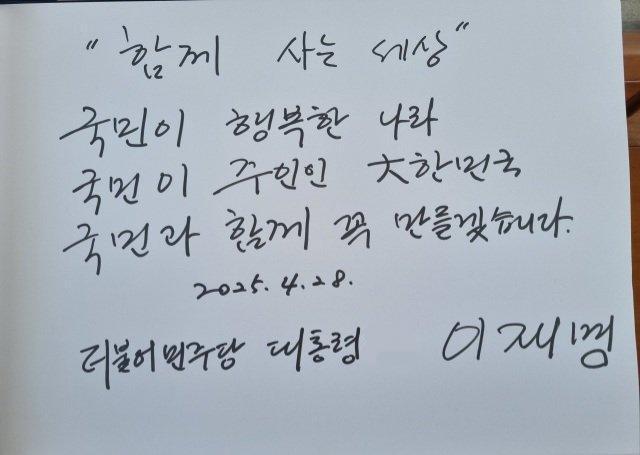 "함께 사는 세상"
국민이 행복한 나라
국민이 주인인 大한민국
국민과 함께 꼭 만들겠습니다.
2025. 4. 28.
더불어민주당 대통령 이재명